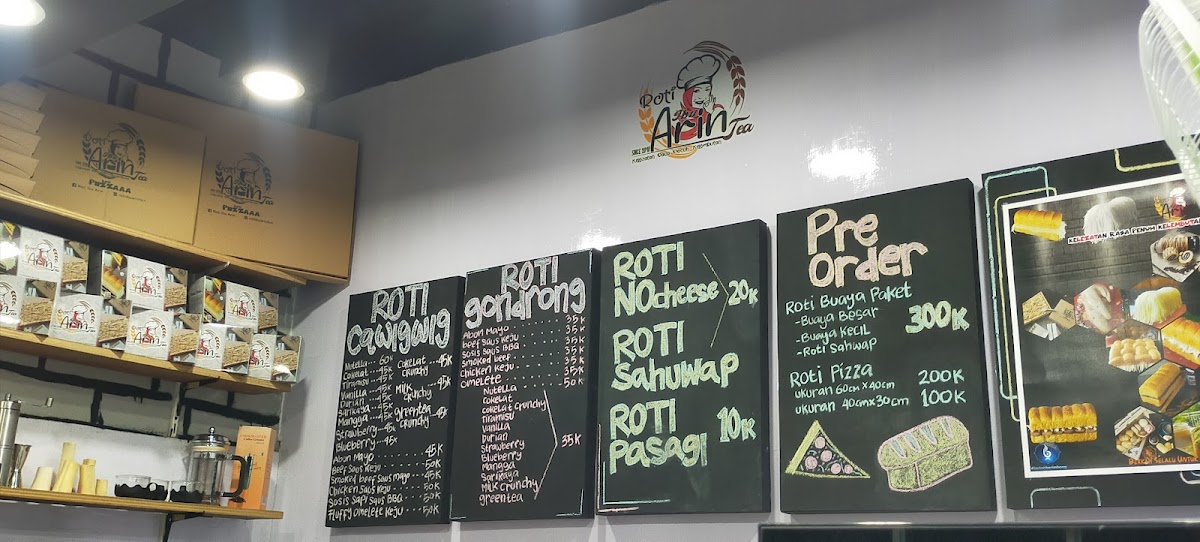 Roti
Ibu
Arin
Tea
Roti
Arin
Tea
Arin
Tea
ROTI
CAWIGWIG
Nutella... 60K
Cokelat...45K
Tiramisu...45K
Vanilla...45K
Durian...45K
Sarikaya...45K
Mangga...45K
Strawberry...45K
Blueberry...45K
Cokelat...45K
Crunchy
Milk...45K
Crunchy
greentea...45K
Crunchy
Abon Mayo 45K
Beef Saus Keju 50K
Smoked beef Saus mayo 45K
Chicken Saus Keju 50K
Sosis Sapi Saus BBQ 50K
Fluffy Omelete Keju 50K
ROTI
gondrong
Abon Mayo 35K
Beef Saus Keju 35K
Sosis Saus BBQ 35K
Smoked beef 35K
Chicken Keju 35K
Omelete 50K
Nutella
Cokelat
Cokelat Crunchy
Tiramisu
Vanilla
Durian
Strawberry
Blueberry
Mangga
Sarikaya
Milk Crunchy
greentea
35K
ROTI
NOcheese 20K
ROTI
Sahuwap
ROTI
Pasagi 10K
Pre
Order
Roti Buaya Paket
-Buaya Besar
-Buaya Kecil
-Roti Sahwap
300K
Roti Pizza
ukuran 60cm x 40cm 200K
ukuran 40cm x 30cm 100K
KELEZATAN RASA PENUH KELEMBUTAN